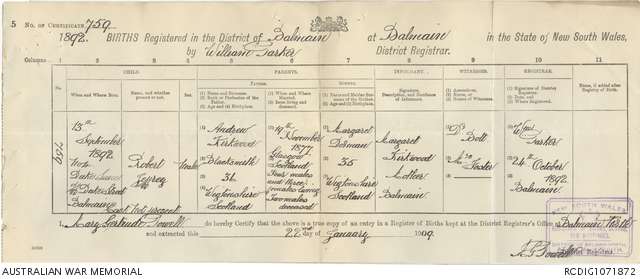 5 No. OF CERTIFICATE 759
1892. BIRTHS Registered in the District of Balmain at Balmain in the State of New South Wales,
by William Parker District Registrar.
Columns :— 1 2 3 4 5 6 7 8 9 10 11
CHILD. PARENTS. INFORMANT. WITNESSES. REGISTRAR.
No. When and Where Born. Name, and whether present or not. Sex. Father. Mother. Name, if added after Registry of Birth.
(1) Name and Surname. (2) Rank or Profession of the Father. (3) Age and (4) Birthplace.
(1) When and Where Married. (2) Issue living and deceased.
(1) Name and Maiden Surname of the Mother. (2) Age and (3) Birthplace.
Signature, Description, and Residence of Informant.
(1) Accoucheur, (2) Nurse, or (3) Names of Witnesses.
(1) Signature of District Registrar, (2) Date, and (3) Where Registered.
759
13th
September
1892
Balmain
Robert
not present
Male
(1) Andrew
Kirkwood
(2) Blacksmith
(3) 31
(4) Wigtonshire
Scotland
(1) 14th
November
1877
Glasgow
Scotland
(2) Four males
and three
males living
Two males
deceased
(1) Margaret
(2) 35
(3) Wigtonshire
Scotland
Margaret
Kirkwood
Mother
Balmain
(1) Dr Bott
(2) Mrs
(1) Wm
Parker
(2) 24th October
1892
(3) Balmain
I, Mary Gertrude Powell do hereby Certify that the above is a true copy of an entry in a Register of Births kept at the District Registrar's Office at Balmain North
and extracted this 22nd day of January 1909.
NEW SOUTH WALES
AUSTRALIAN WAR MEMORIAL RCDIG1071872